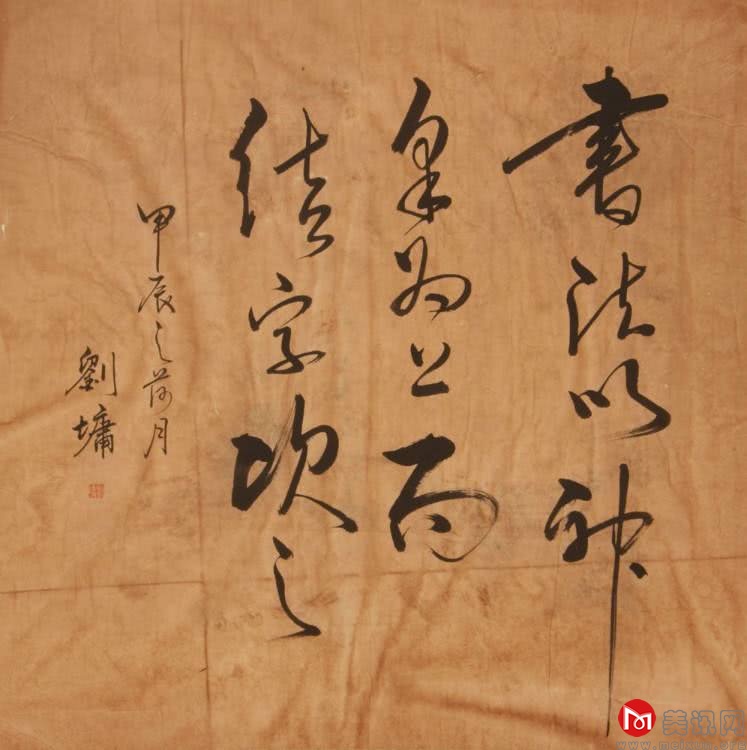 書法以神
采為上而
結字次之
甲辰之荷月
劉墉
美讯网